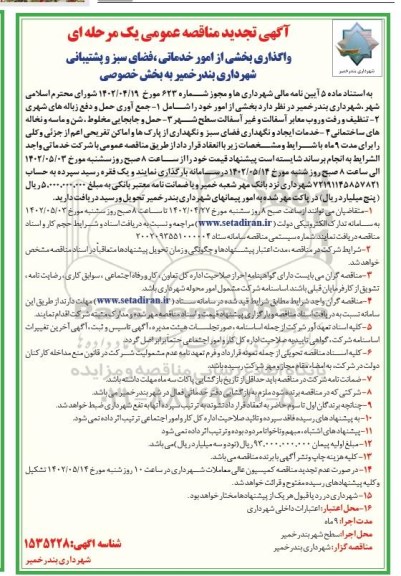 آگهی تجدید مناقصه عمومی یک مرحله ای
واگذاری بخشی از امور خدماتی ،فضای سبز و پشتیبانی
شهرداری بندرخمیر به بخش خصوصی
شهرداری بندرخمیر
به استناد ماده ۵ آیین نامه مالی شهرداری ها و مجوز شماره ۶۲۳ مورخ ۱۴۰۲/۰۴/۱۹ شورای محترم اسلامی
شهر ،شهرداری بندرخمیر در نظر دارد بخشی از امور خود را شامل ۱- جمع آوری حمل و دفع زباله های شهری
۲- تنظیف و رفت و روب معابر آسفالت و غیر آسفالت سطح شهر ۳- حمل و جابجایی مخلوط ،شن و ماسه و نخاله
های ساختمانی ۴- خدمات ایجاد و نگهداری فضای سبز و نگهداری از پارک ها و اماکن تفریحی اعم از جزئی و کلی
را برای مدت ۹ ماه با شرایط و مشخصات زیر با انعقاد قرار داد از طریق مناقصه عمومی با شرکت خدماتی واجد
الشرایط به انجام برساند شایسته است پیشنهاد قیمت خود را از ساعت ۸ صبح روز سه شنبه مورخ ۱۴۰۲/۰۵/۰۳
الی ساعت ۸ صبح روز شنبه مورخ ۱۴۰۲/۰۵/۱۴ در سامانه بارگذاری نمایند و یک فقره رسید سپرده به حساب
۷۲۱۹۱۱۴۵۸۵۷۸۲۱ شهرداری نزد بانک مهر شعبه خمیر و یا ضمانت نامه معتبر بانکی به مبلغ ۵،۰۰۰،۰۰۰،۰۰۰ ریال
( پنج میلیارد ریال) ، در پاکت مهر شده به امور پیمانهای شهرداری بندر خمیر تحویل و رسید دریافت دارید.
۱-متقاضیان می توانند از ساعت ۸ صبح روز سه شنبه مورخ ۱۴۰۲/۰۴/۲۷ تا ساعت ۸ صبح روز سه شنبه مورخ ۱۴۰۲/۰۵/۰۳
به سامانه تدارک الکترونیکی دولت (www.setadiran.ir) مراجعه و نسبت به دریافت اسناد و شرایط حجم کار و اسناد
مناقصه دریافت نمایند.شماره سیستمی مناقصه سامانه ستاد
۲-شرایط شرکت در مناقصه ،مدت اعتبار پیشنهادها و چگونگی و زمان تحویل پیشنهادها متعاقباً در اسناد مناقصه مشخص
خواهد شد.
۳-مناقصه گران می بایست دارای گواهینامه احراز صلاحیت اداره کل تعاون ، کار و رفاه اجتماعی ، سوابق کاری ، رضایت نامه ،
تشویق از کارفرمایان قبلی باشند.اساسنامه شرکت مشمول امور محوله شهرداری باشد.
۴-مناقصه گران واجد شرایط مطابق شرایط قید شده در سامانه ستاد (www.setadiran.ir) مهلت دارند از طریق این
سامانه نسبت به دریافت اسناد مناقصه و بارگزاری پیشنهاد قیمت و اسناد مناقصه مهر شده و مدارک مثبته شرکت اقدام نمایند.
۵-کلیه اسناد تعهد آور شرکت از جمله اساسنامه ، صورتجلسات هیئت مدیره ، آگهی تاسیس و ثبت ، آگهی آخرین تغییرات
اساسنامه شرکت ، گواهی تاییدیه صلاحیت اداره کل کار و امور اجتماعی حتما برابر اصل گردد.
۶-کلیه اسناد مناقصه تحویلی از جمله نمونه قرارداد و فرم تعهد نامه عدم مشمولیت شرکت در قانون منع مداخله کارکنان
دولت در شرکت ، به امضاء مقام مجاز و مهر شرکت رسیده باشد.
۷- ضمانت نامه شرکت در مناقصه باید حداقل از تاریخ بازگشایی پاکات سه ماه مهلت داشته باشد.
۸- شرکتی که در مناقصه برنده شود ملزم به بازگشایی دفتر خدماتی فعال در شهر بندر خمیر می باشد.
۹-چنانچه برندگان اول تا سوم حاضر به انعقاد قرارداد نشوند به ترتیب سپرده آنها به نفع شهرداری ضبط خواهد شد.
۱۰- به پیشنهاد های رسیده فاقد سپرده و تائید صلاحیت اداره کل کار و امور اجتماعی ترتیب اثر داده نمی شود.
۱۱- پیشنهاد های اشتباه ، مبهم و ناخوانا مردود بوده و ترتیب اثر داده نمی شود
۱۲- مبلغ اولیه پیمان ۹۳،۰۰۰،۰۰۰،۰۰۰ ریال (نود و سه میلیارد ریال )می باشد.
۱۳- کلیه هزینه چاپ و نشر آگهی با برنده مناقصه می باشد.
۱۴- در صورت عدم تجدید مناقصه کمیسیون عالی معاملات شهرداری در ساعت ۱۰ روز شنبه مورخ ۱۴۰۲/۰۵/۱۴ تشکیل
و کلیه پیشنهاد های رسیده مفتوح و قرائت خواهد شد.
۱۵- شهرداری در رد یا قبول هر یک از پیشنهادها مختار خواهد بود.
۱۶- محل اعتبار: اعتبارات داخلی شهرداری
مدت اجرا: ۹ ماه
محل اجرا: سطح شهر بندر خمیر
مناقصه گزار: شهرداری بندر خمیر
شناسه آگهی: ۱۵۳۵۲۲۸
شهرداری بندرخمیر